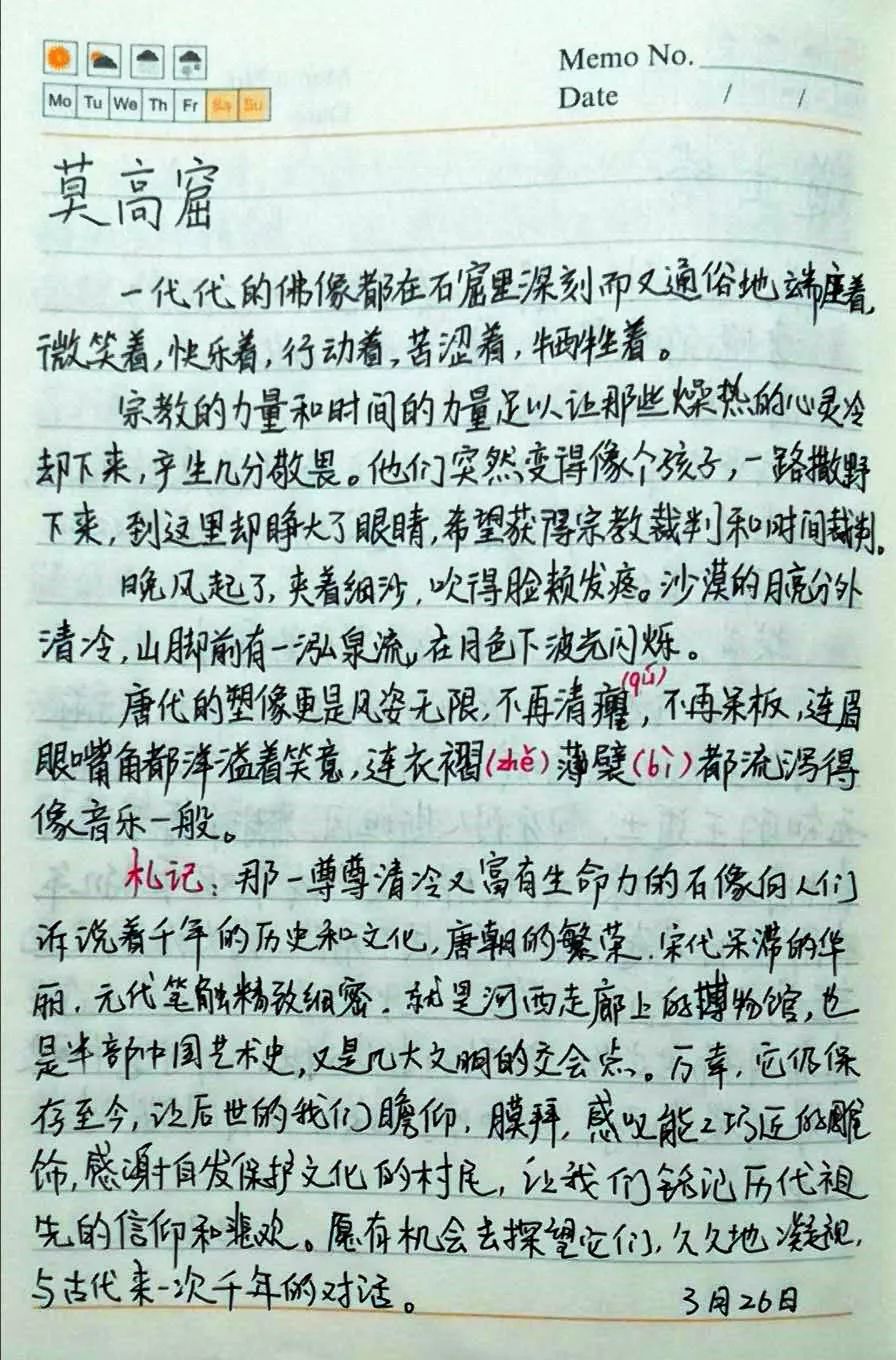 Memo No.
Mo Tu We Th Fr Sa Su
Date / /
莫高窟
一代代的佛像都在石窟里深刻而又通俗地端座着,
微笑着,快乐着,行动着,苦涩着,牺牲着。
宗教的力量和时间的力量足以让那些燥热的心灵冷
却下来,产生几分敬畏。他们突然变得像个孩子,一路撒野
下来,到这里却睁大了眼睛,希望获得宗教裁判和时间裁判。
晚风起了,夹着细沙,吹得脸颊发疼。沙漠的月亮分外
清冷,山脚前有一泓泉流,在月色下波光闪烁。
唐代的塑像更是风姿无限,不再清癯(qú),不再呆板,连眉
眼嘴角都洋溢着笑意,连衣褶(zhě)薄襞(bì)都流泻得
像音乐一般。
札记:那一尊尊清冷又富有生命力的石像向人们
诉说着千年的历史和文化,唐朝的繁荣、宋代呆滞的华
丽、元代笔触精致细密、就是河西走廊上的博物馆,也
是半部中国艺术史,又是几大文明的交会点。万幸,它仍保
存至今,让后世的我们瞻仰、膜拜,感叹能工巧匠的雕
饰,感谢自发保护文化的村民,让我们铭记历代祖
先的信仰和悲欢。愿有机会去探望它们,久久地凝视,
与古代来一次千年的对话。 3月26日